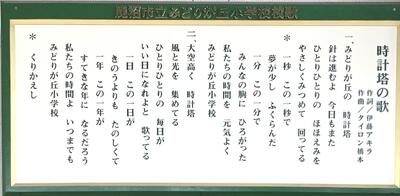 鹿沼市立みどりが丘小学校校歌
時計塔の歌
作詞／伊藤アキラ
作曲／タイロン橋本
一、みどりが丘の 時計塔
針は進むよ 今日もまた
ひとりひとりの ほほえみを
やさしくみつめて 回ってる
＊ 一秒 この一秒で
夢が少し ふくらんだ
一分 この一分で
みんなの胸に ひろがった
私たちの時間を 元気よく
みどりが丘小学校
二、大空高く 時計塔
風と光を 集めてる
ひとりひとりの 毎日が
いい日になれよと 歌ってる
一日 この一日が
きのうよりも たのしくて
一年 この一年が
すてきな年に なるだろう
私たちの時間よ いつまでも
みどりが丘小学校
＊ くりかえし